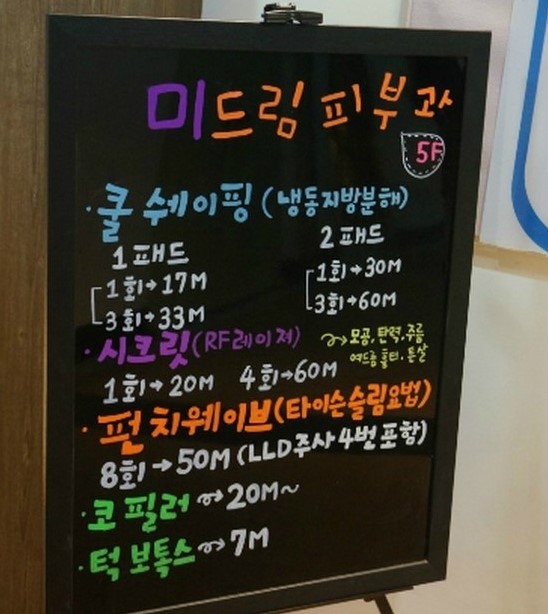 미드림 피부과
5F
· 쿨 쉐이핑 (냉동지방분해)
1 패드 2 패드
1회→17M 1회→30M
3회→33M 3회→60M
· 시크릿 (RF레이져) ↝모공, 탄력, 주름
여드름 흉터, 튼살
1회→20M 4회→60M
· 펀치웨이브 (타이슨슬림요법)
8회→50M (LLD주사 4번 포함)
· 코 필러 ↝ 20M~
· 턱 보톡스 ↝ 7M